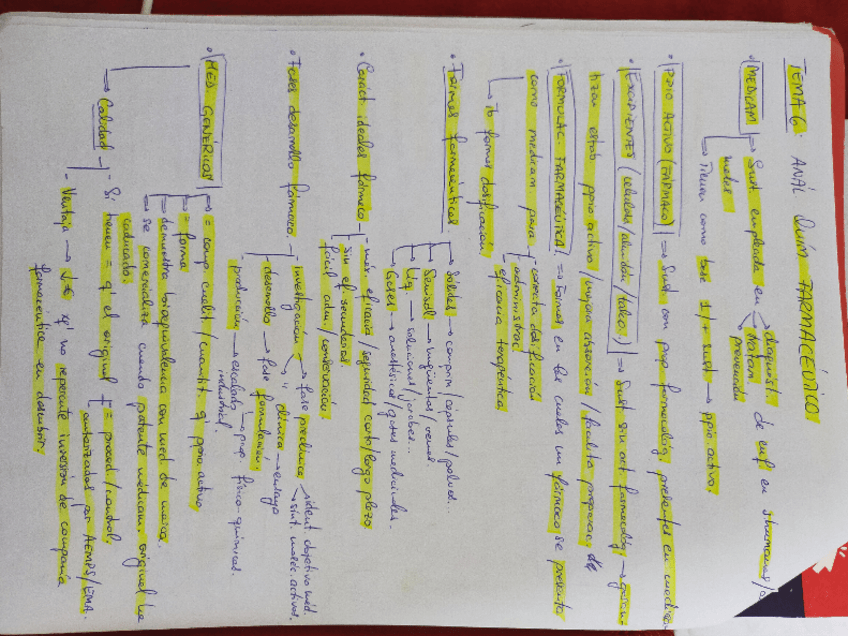 TEMA 6: ANÁL QUÍM FARMACÉUTICO
• MEDICAM → Sust empleada en diagnóst. de enf en
tratam.
prevención
→ Tienen como base 1/+ sust → ppio. activo.
• PPIO ACTIVO (FÁRMACO) → Sust con prop farmacológ. presentes en
• EXCIPIENTES (celulosa/almidón/talco..) → Sust sin act. farmacológ → garan-
tizan estab ppio activo / mejora absorción / facilita preparac.
• FORMULAC. FARMACÉUTICA → Formas en las cuales un fármaco se presenta
como medicam para correcta dosificación
administrac
eficacia terapéutica
→ formas dosificación
• Formas farmacéuticas → Sólidas → comprim/cápsulas/polvos...
→ Semisol → ungüentos/cremas
→ Líq. → soluciones/jarabes...
→ Gases → anestésicos/gases medicinales.
• Caráct. ideales fármaco - max. eficacia/seguridad corto/largo plazo
Sin ef. secundarios.
fácil adm./conservación.
• Fases desarrollo fármaco. - investigación → fase preclínica → ident. objetivo méd.
→ sint. moléc. activas.
→ " clínica → ensayo
- desarrollo → fase formulación.
- producción → escalado → prop. físico-químicas.
industrial.
• MED. GENÉRICOS → = comp. cualit/cuantit. q' ppio activo
→ = forma
→ demuestra bioequivalencia con med. de marca.
→ se comercializa cuando patente medicam. original ha
caducado.
→ Calidad - Si tienen = q' el original = proved/control.
autorizados por AEMPS/EMA.
- Ventaja → ↓ € xq' no repercute inversión de compañía
farmacéutica en descubrir.